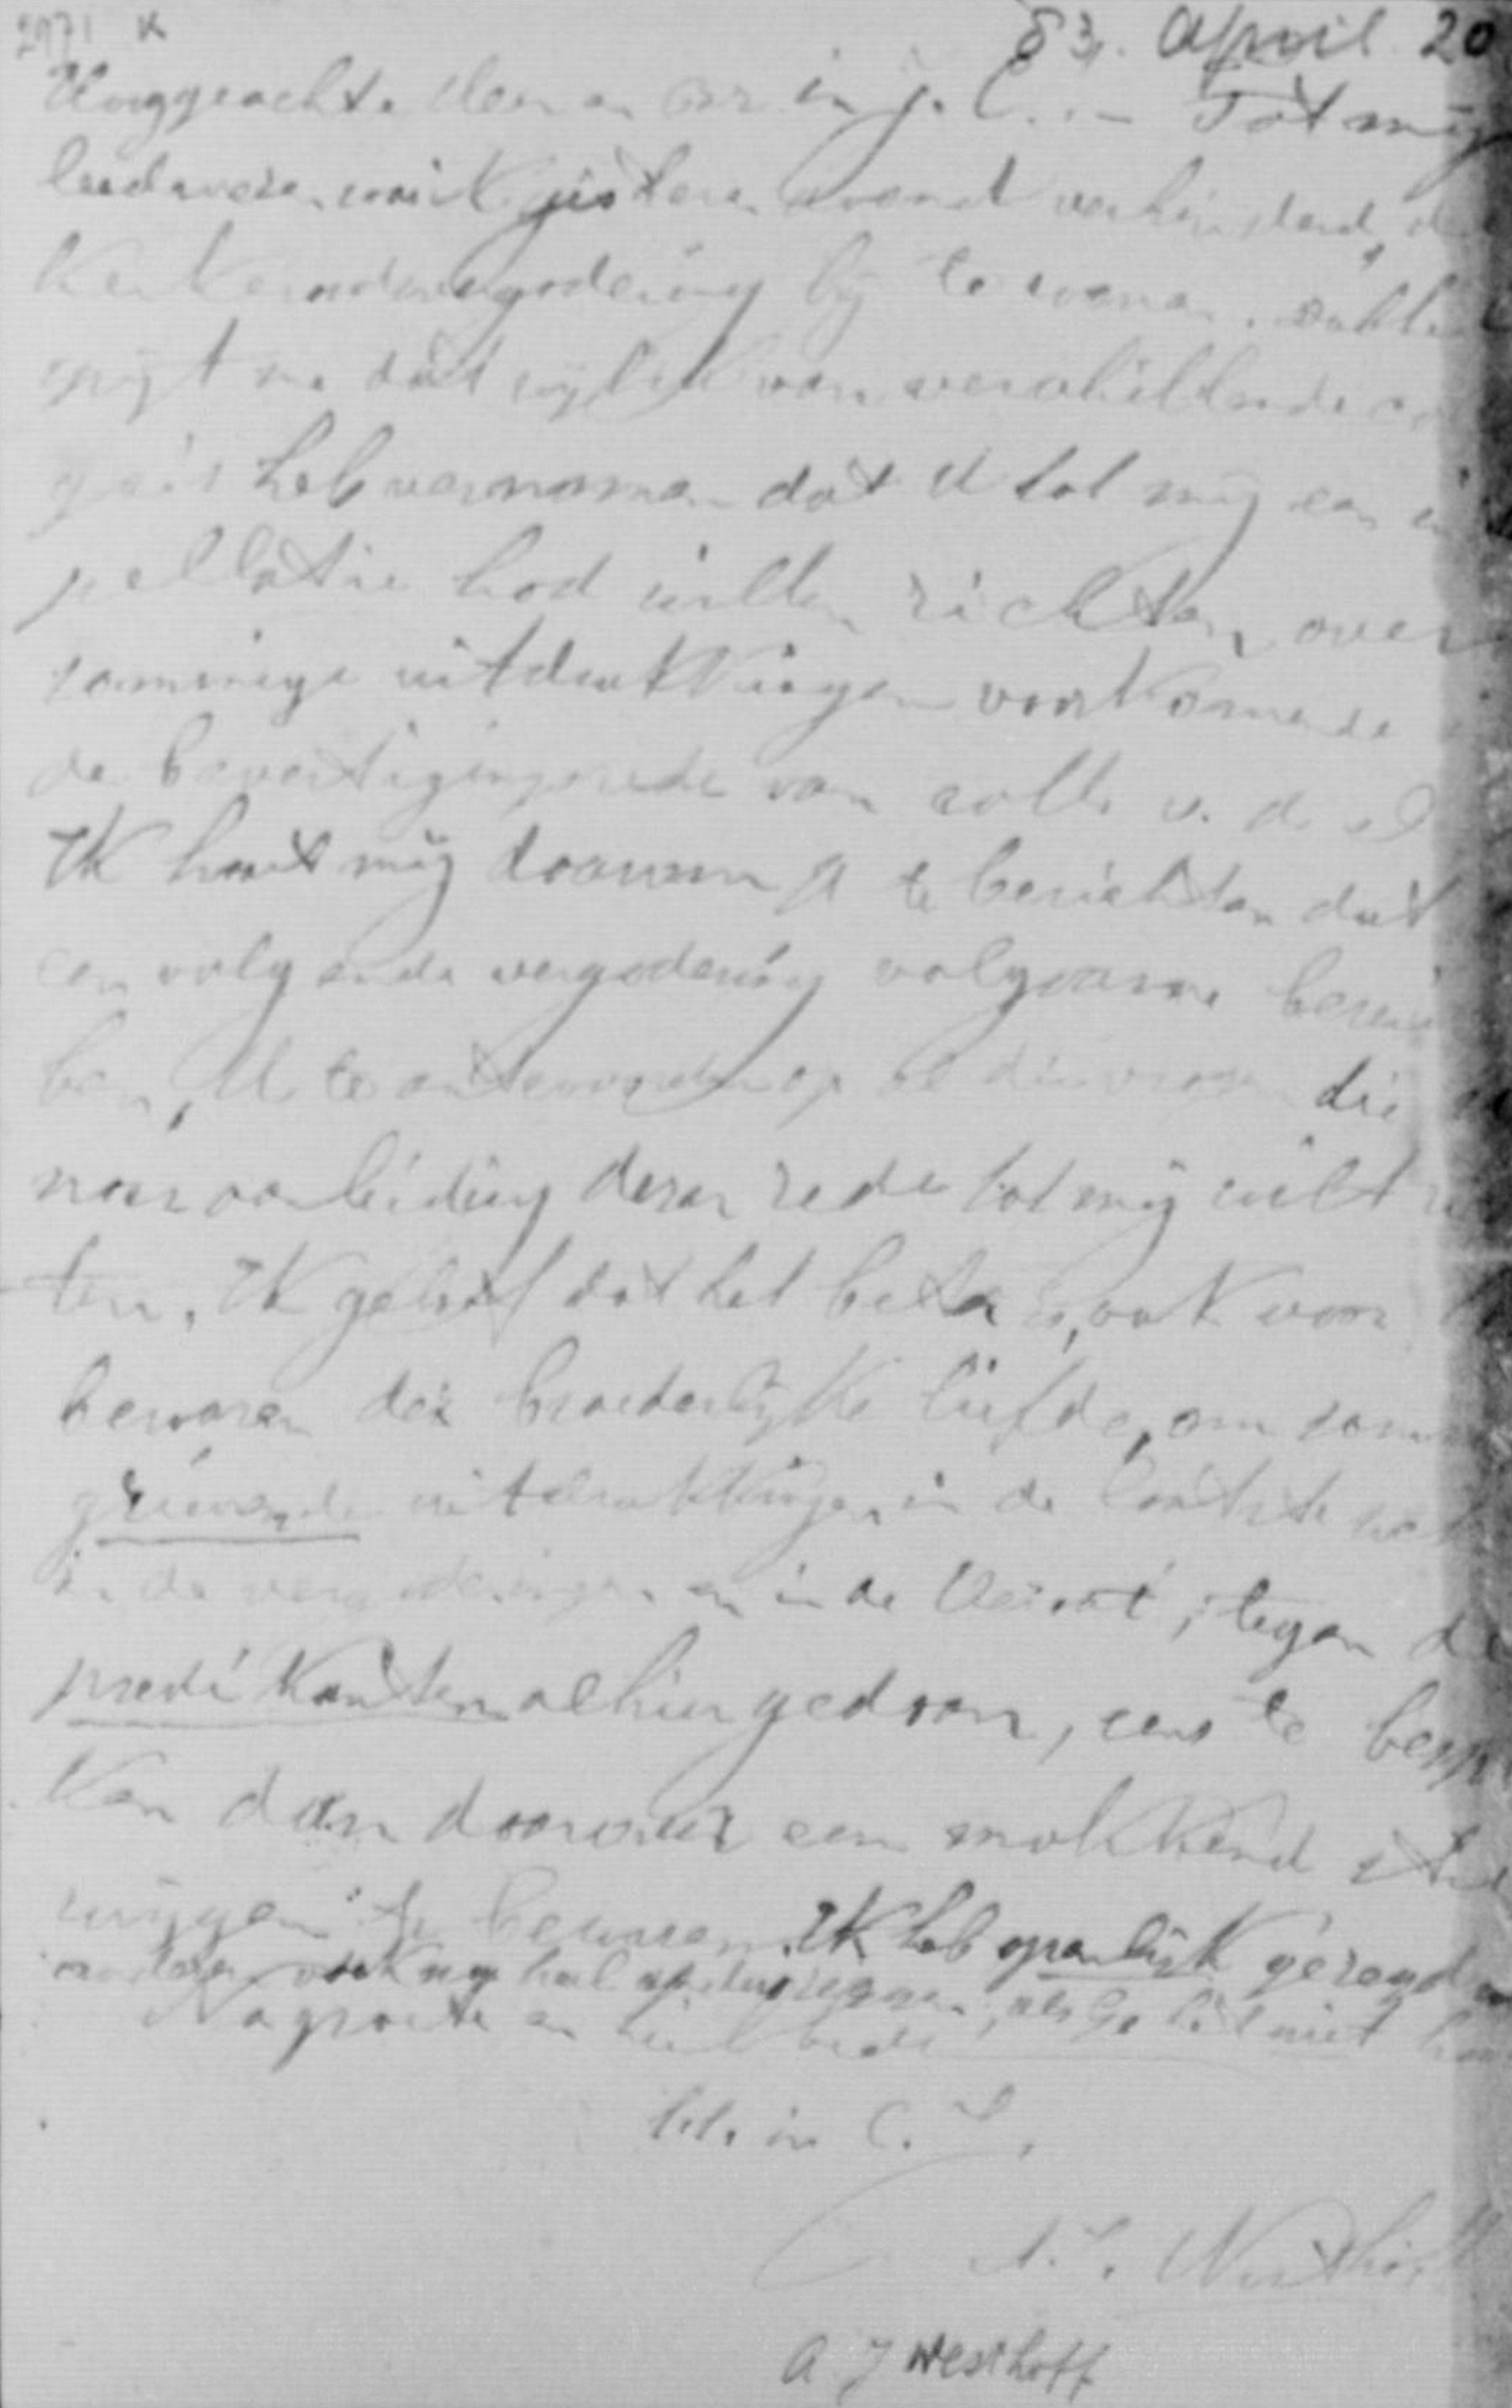 2971 K
83. April 20
Hooggeachte Heer en Br in J. C. – Tot mijn
leedwezen was ik gisteren avond verhinderd, de
Kerkeradsvergadering bij te wonen.
spijt me dat wijl ik van verschillende
heb vernomen dat U tot mij een
pellatie had willen richten over
sommige uitdrukkingen voorkomende
de bevestigingsrede van coll. v. d.
Ik haast mij daarom U te berichten dat
een volgende vergadering volgaarne bereid
ben, U te antwoorden op al die vragen die
naar aanleiding dezer rede tot mij wilt
ten. Ik geloof dat het beter is, ook voor
bewaren der broederlijke liefde, om
grievende uitdrukkingen in de laatste
in de vergaderingen en in de Heraut, tegen de
predikanten alhier gedaan, eens te bespre
ken dan daarover een mokkend stil
zwijgen te bewaren. Ik heb openlijk gezegd
Na groete en heilbede
in C. J.
A. J. Westhoff
A J Westhoff